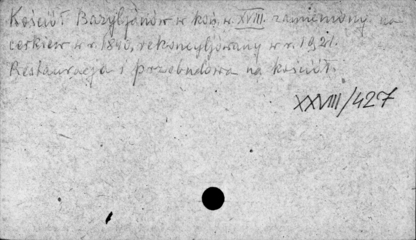 Kościół Bazyljanów w koń. w. XVIII. zamieniony na
cerkiew w r. 1840, rekoncyljowany w r. 1921.
Restauracja i przebudowa na kościół.
XXVIII/427